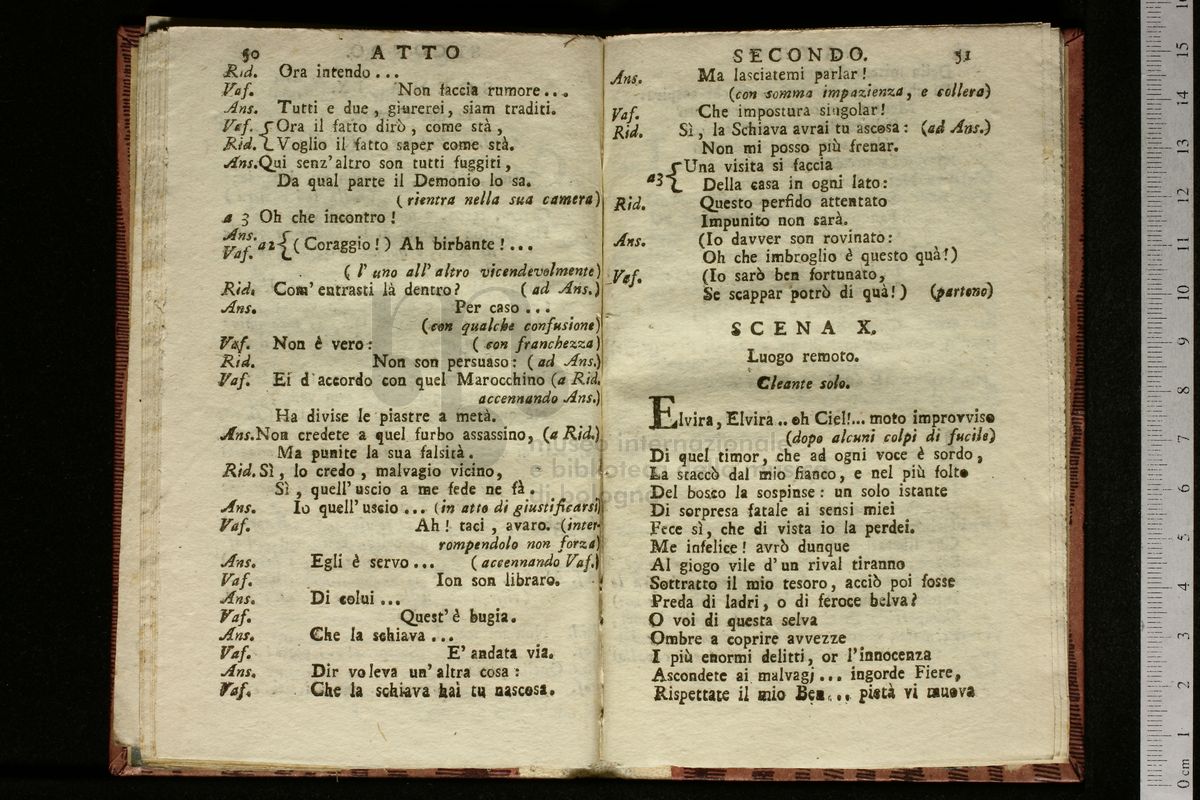 50 ATTO
Rid. Ora intendo ...
Vaf. Non faccia rumore ...
Ans. Tutti e due, giurerei, siam traditi.
Vaf. { Ora il fatto dirò, come stà,
Rid. { Voglio il fatto saper come stà.
Ans. Quì senz' altro son tutti fuggiti,
Da qual parte il Demonio lo sa.
(rientra nella sua camera)
a 3 Oh che incontro!
Ans.
Vaf. a2 { (Coraggio!) Ah birbante! ...
(l' uno all' altro vicendevolmente)
Rid. Com' entrasti là dentro? (ad Ans.)
Ans. Per caso ...
(con qualche confusione)
Vaf. Non è vero: (con franchezza)
Rid. Non son persuaso: (ad Ans.)
Vaf. Ei d'accordo con quel Marocchino (a Rid.
accennando Ans.)
Ha divise le piastre a metà.
Ans. Non credete a quel furbo assassino, (a Rid.)
Ma punite la sua falsità.
Rid. Sì, lo credo, malvagio vicino,
Sì, quell' uscio a me fede ne fà.
Ans. Io quell' uscio ... (in atto di giustificarsi)
Vaf. Ah! taci, avaro. (inter-
rompendolo non forza)
Ans. Egli è servo ... (accennando Vaf.)
Vaf. Ion son libraro.
Ans. Di colui ...
Vaf. Quest' è bugia.
Ans. Che la schiava ...
Vaf. E' andata via.
Ans. Dir voleva un' altra cosa:
Vaf. Che la schiava hai tu nascosa.
SECONDO. 51
Ans. Ma lasciatemi parlar!
(con somma impazienza, e collera)
Vaf. Che impostura singolar!
Rid. Sì, la Schiava avrai tu ascosa: (ad Ans.)
Non mi posso più frenar.
a3 { Una visita si faccia
Della casa in ogni lato:
Rid. Questo perfido attentato
Impunito non sarà.
Ans. (Io davver son rovinato:
Oh che imbroglio è questo quà!)
Vaf. (Io sarò ben fortunato,
Se scappar potrò di quà!) (partono)
SCENA X.
Luogo remoto.
Cleante solo.
Elvira, Elvira .. oh Ciel!... moto improvviso
(dopo alcuni colpi di fucile)
Di quel timor, che ad ogni voce è sordo,
La staccò dal mio fianco, e nel più folto
Del bosco la sospinse: un solo istante
Di sorpresa fatale ai sensi miei
Fece sì, che di vista io la perdei.
Me infelice! avrò dunque
Al giogo vile d' un rival tiranno
Sottratto il mio tesoro, acciò poi fosse
Preda di ladri, o di feroce belva?
O voi di questa selva
Ombre a coprire avvezze
I più enormi delitti, or l'innocenza
Ascondete ai malvagj ... ingorde Fiere,
Rispettate il mio Ben ... pietà vi muova
museo internazionale
e biblioteca della musica
di bologna
15
14
13
12
11
10
9
8
7
6
5
4
3
2
1
0 cm